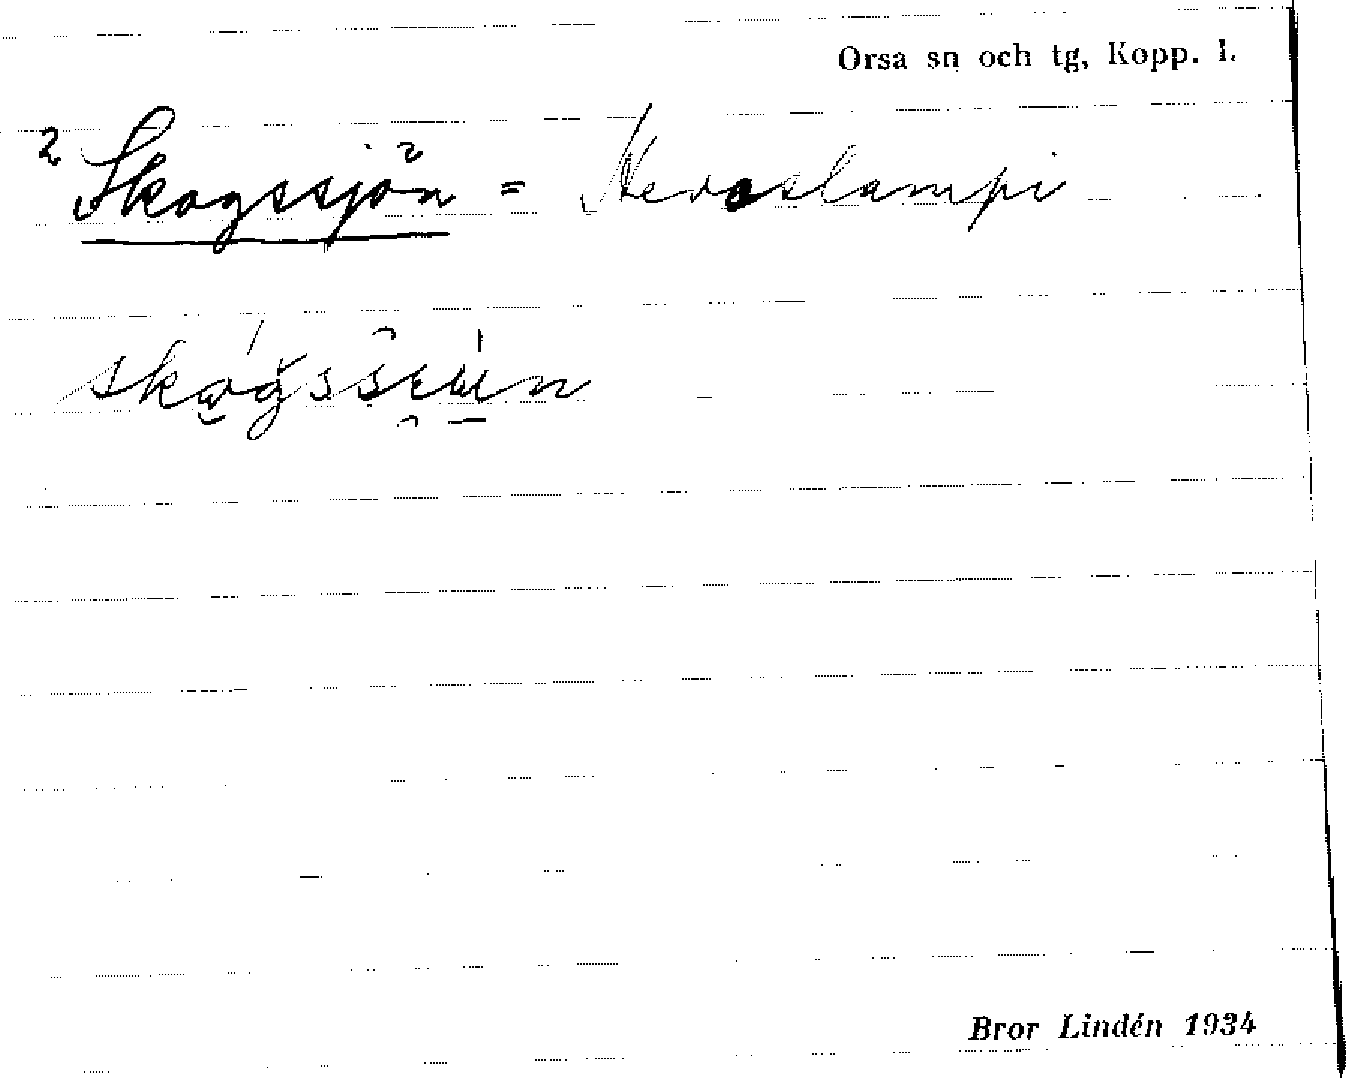 Orsa sn och tg, Kopp. l.
2 Skogssjön 2 = Hevoslampi
Bror Lindén 1934